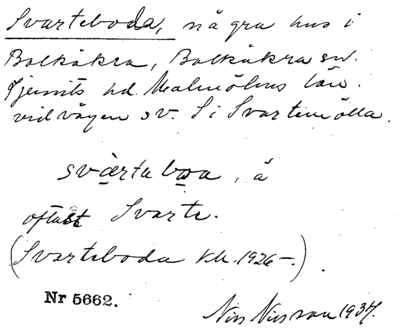 Svarteboda, några hus i
Balkåkra, Balkåkra sn.
Ljunits hd. Malmöhus län.
vid vägen sv. S i Svartemölla.
svàrtaboa, å
oftast Svarte.
(Svarteboda kk. 1926-.)
Nr 5662.
Nils Nilsson 1934.